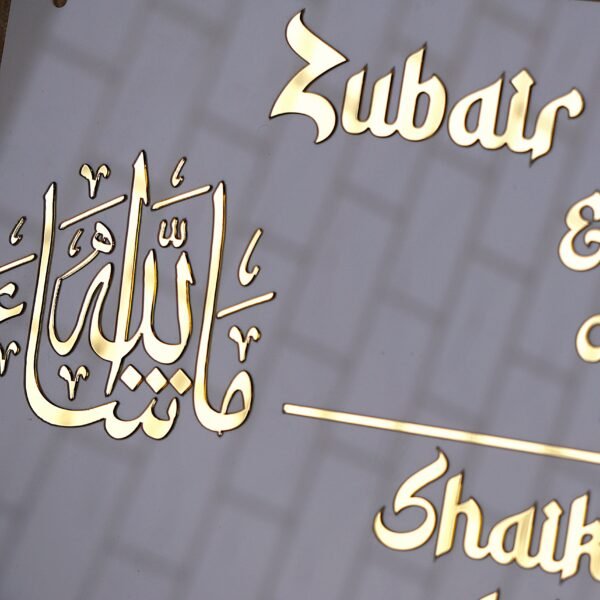 Zubair
&
ما شاء الله
Shaik